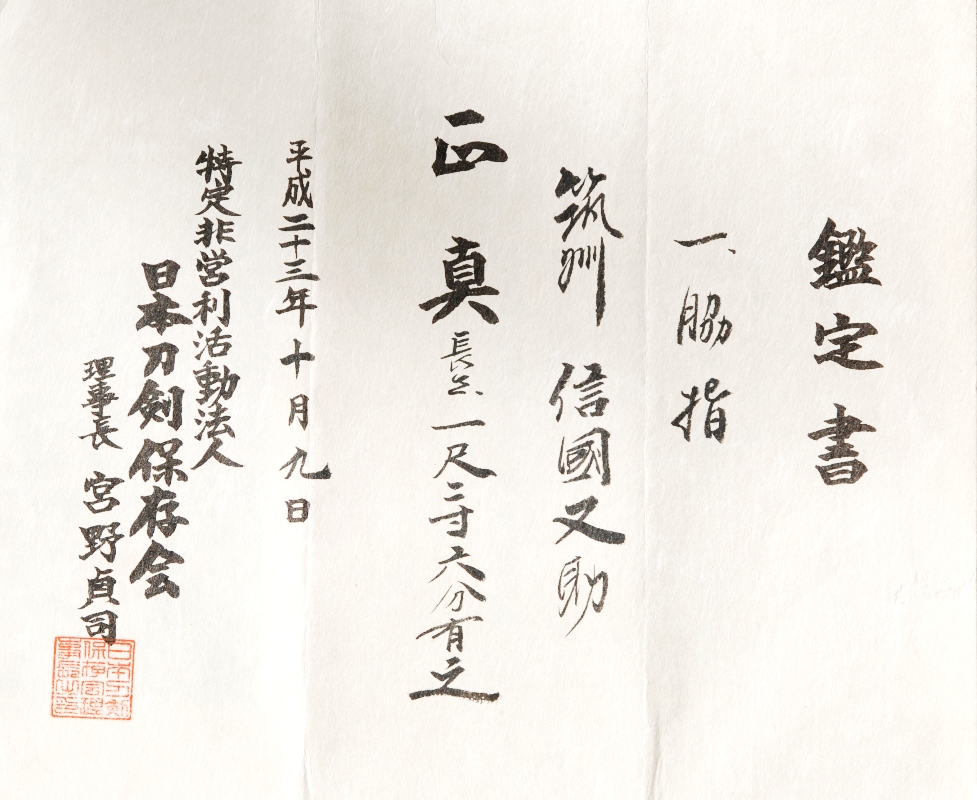 鑑定書
一、脇指
筑州 信國又助
正真 長サ、一尺二寸六分有之
平成二十三年十月九日
特定非営利活動法人
日本刀剣保存会
理事長 宮野貞司
日本刀剣
保存会理
事長之印